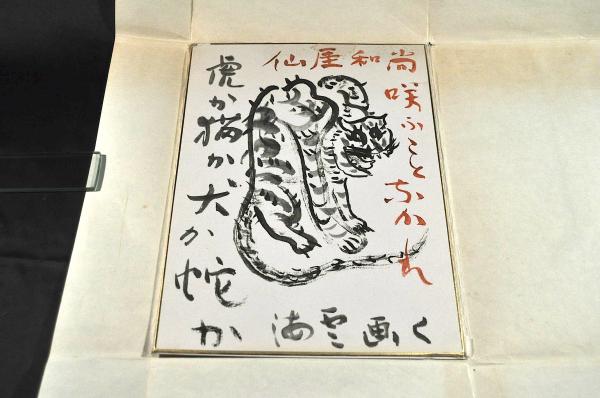 仙厓和尚
咲ふことなかれ
虎か猫か犬か蛇か
海雲画く